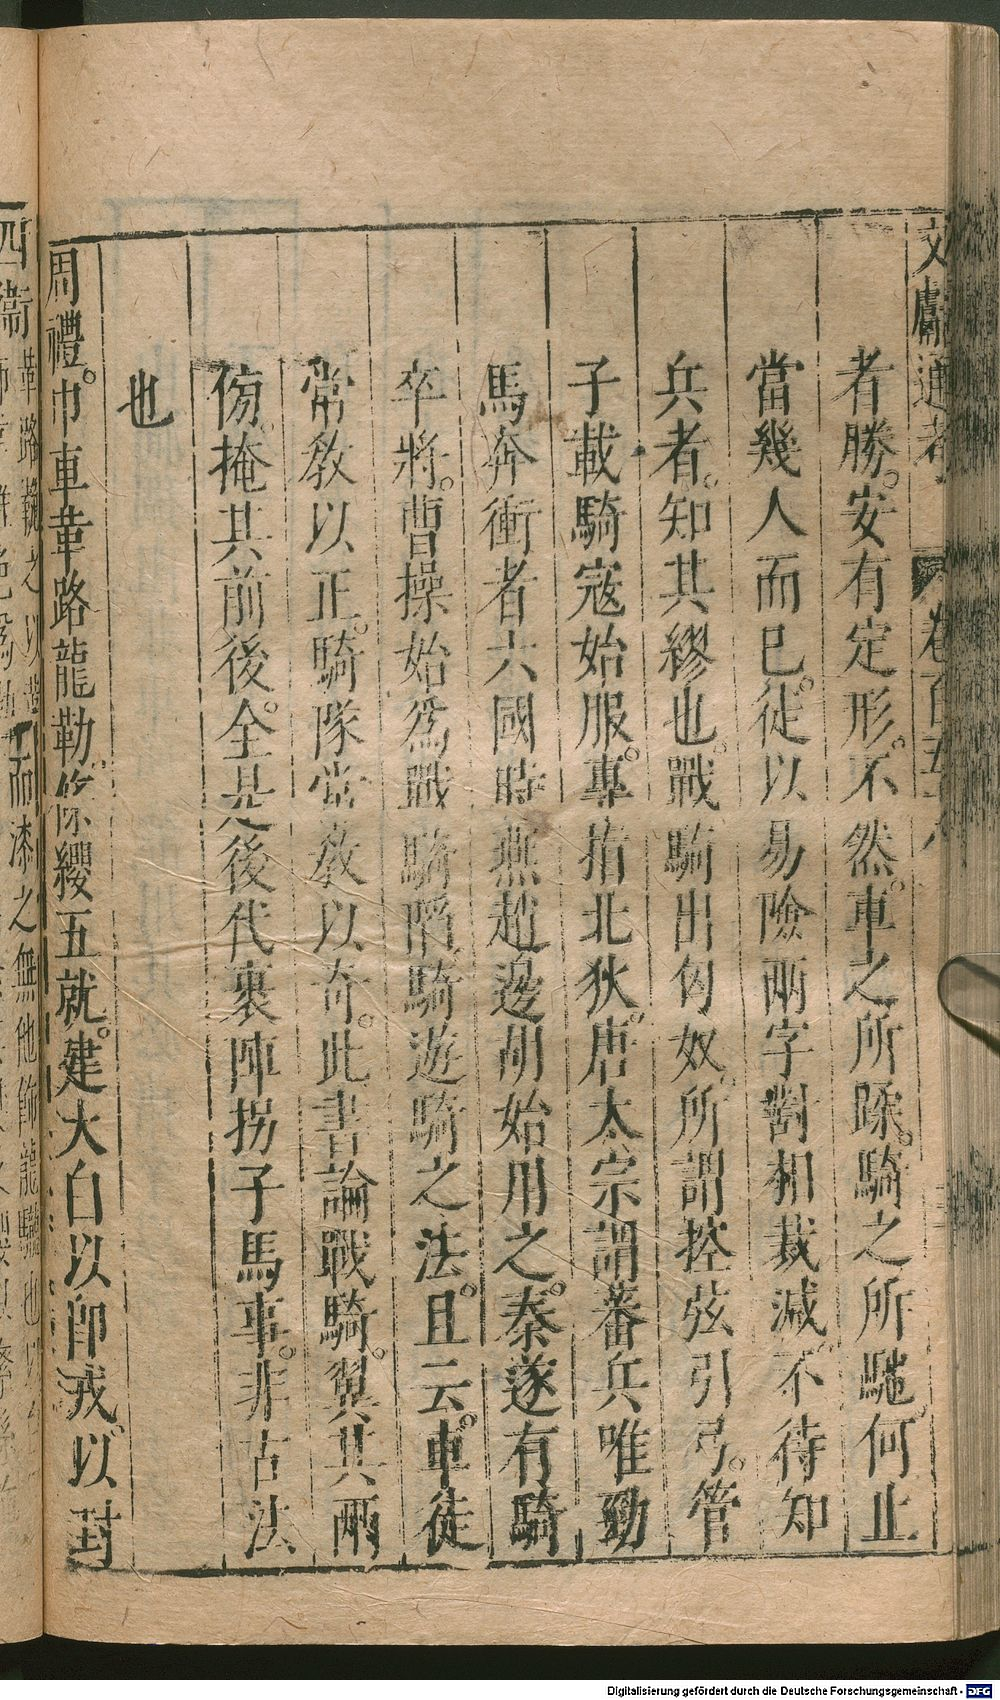 文獻通考 卷百五十八
者勝。安有定形。不然。車之所踩。騎之所馳。何止
當幾人而已。徒以易險兩字對相裁減。不待知
兵者。知其繆也。戰騎出匈奴。所謂控弦引弓。管
子載騎寇始服。專指北狄。唐太宗謂蕃兵唯勁
馬奔衝者六國時燕趙邊胡始用之。秦遂有騎
卒將。曹操始爲戰騎陷騎遊騎之法。且云。車徒
常敎以正。騎隊常敎以奇。此書論戰騎。翼其兩
傍。掩其前後。全是後代裹陣拐子馬事。非古法
也
周禮。巾車革路龍勒。條纓五就。建大白以卽戎。以封
四衛
而漆之無他飾
Digitalisierung gefördert durch die Deutsche Forschungsgemeinschaft - DFG